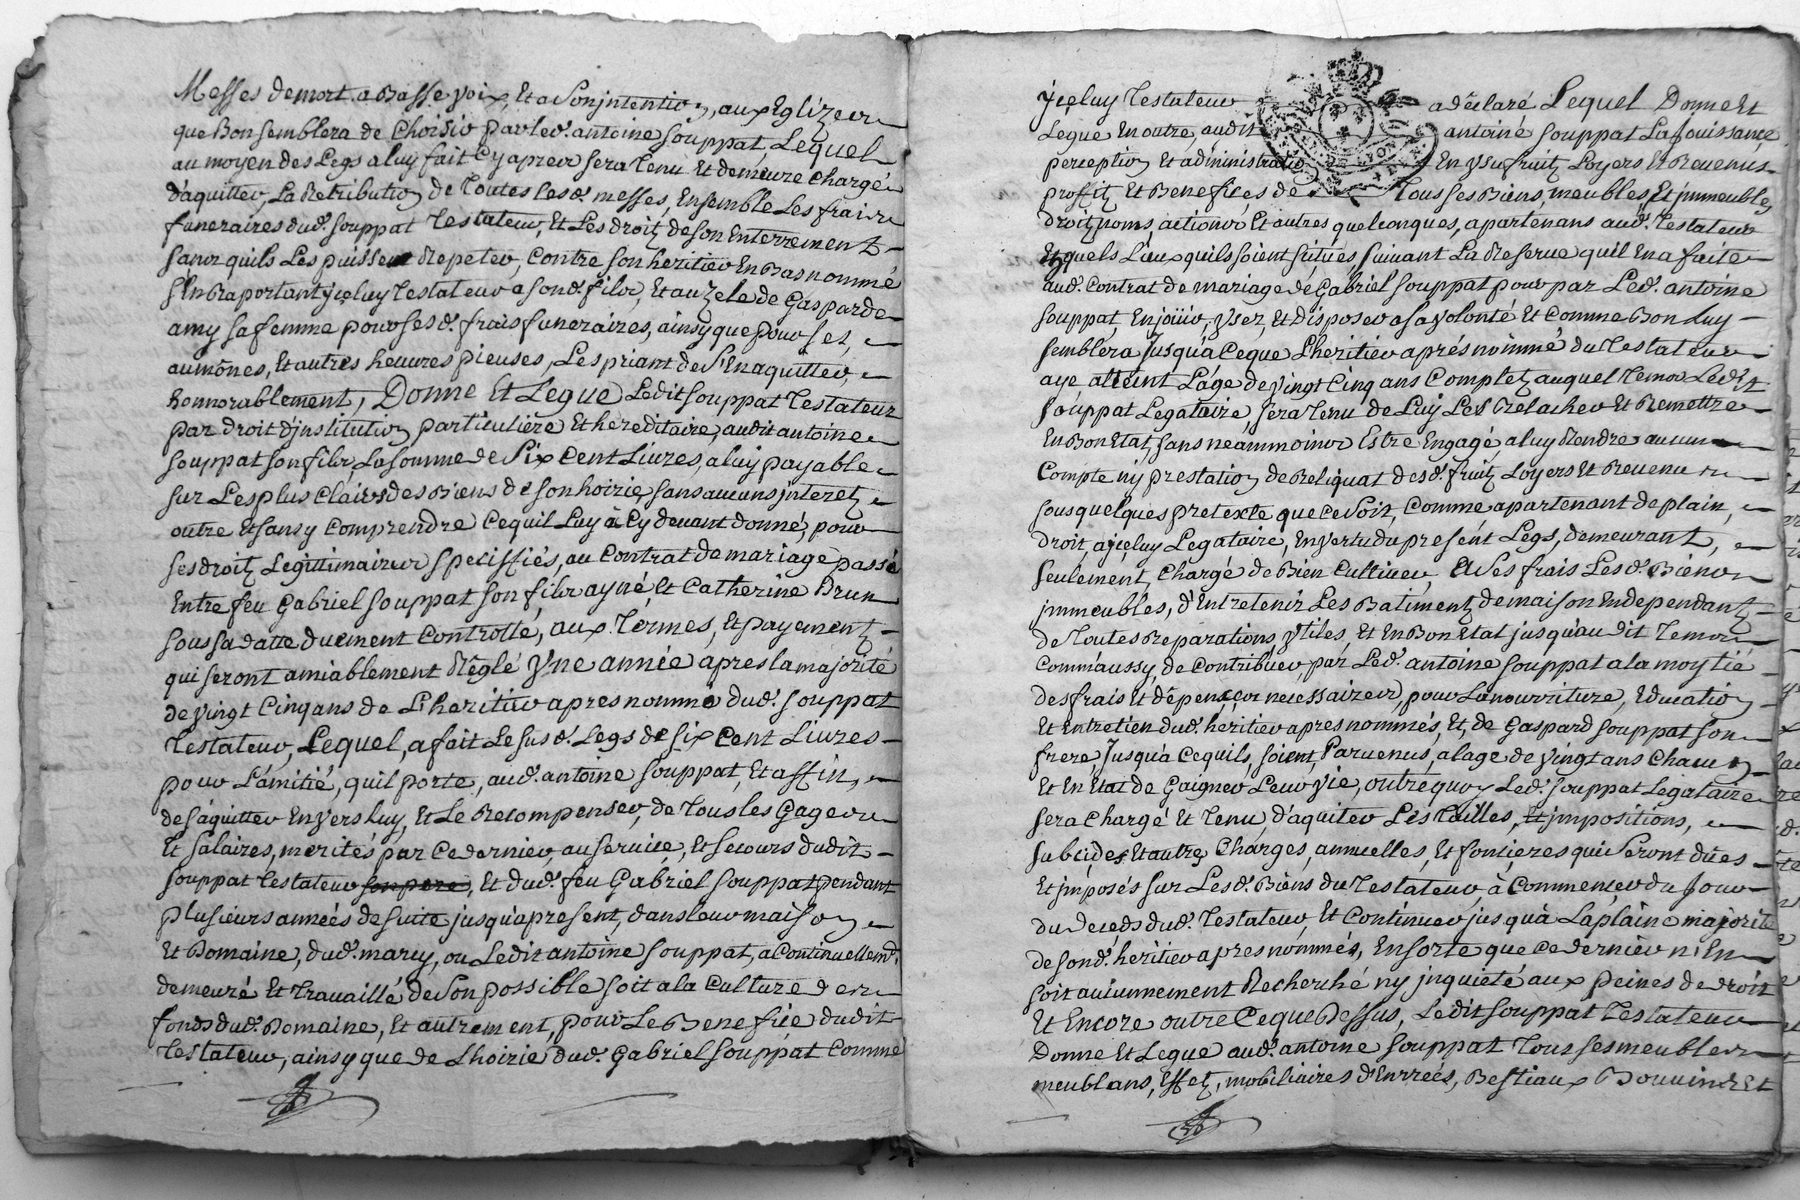 Messes de mort a Basse voix, Et a son jntention, aux Eglizes
que Bon semblera de Choisir par led. antoine souppat, Lequel
au moyen des Legs a luy fait Cy apres sera Tenu Et demeure chargé
d'aquitter La Retribution de Toutes lesd. messes, Ensemble Les frais
funeraires dud. souppat Testateur, Et Les droitz de son Enterrement
sans quils Les puissent Repeter, Contre son heritier En Bas nommé
s'En Raportant yceluy Testateur a sond. fils, Et au Zele de Gasparde
amy sa femme pour sesd. frais funeraires, ainsy que pour ses,
aumônes, Et autres heuvres pieuses, Les priant de S'En aquitter,
honnorablement, Donne Et Legue Ledit souppat Testateur
par droit d'jnstitution particuliere Et hereditaire, audit antoine
souppat son fils La somme de Six Cent Livres, a luy payable
sur Les plus Claires des Biens de son hoirie, sans aucuns jnteretz
outre Et sans y Comprendre Ce quil Luy à Cy devant donné, pour
ses droitz Legitimaires speciffiés, au Contrat de mariage passé
Entre feu Gabriel souppat son fils ayné, Et Catherine Brun
sous sa datte duement Controllé, aux Termes, Et payementz
qui seront amiablement Rêglé Vne année apres la majorité
de vingt Cinq ans de L'heritier apres nommé dud. souppat
Testateur, Lequel, a fait Le susd. Legs de six Cent Livres
pour L'amitié, quil porte, aud. antoine souppat, Et affin,
de s'aquitter Envers luy, Et Le Recompenser, de Tous les Gages
Et salaires, merités par Ce dernier, au service, Et secours dudit
souppat Testateur son pere, Et dud. feu Gabriel souppat pendant
plusieurs années de suite jusqu'apresent, dans leur maison
Et Domaine, dud. marcy, ou Ledit antoine souppat, a Continuellemt.
demeuré Et Travaillé de son possible soit a la Culture des
fonds dud. Domaine, Et autrement, pour Le Benefice dudit
Testateur, ainsy que de L'hoirie dud. Gabriel souppat Comme
ycelluy Testateur a déclaré Lequel Donne Et
Legue En outre, audit antoine souppat La Jouissance
perception Et administration En Vsufruitz Loyers Et Revenus
profitz Et Benefices de Tous ses Biens, meubles Et jmmeubles
droitz noms, actions Et autres quelconques, apartenans aud. Testateur
Et quels Lieux quils soient situés, suivant La Reserve quil En a faite
aud. Contrat de mariage de Gabriel souppat pour par Led. antoine
souppat En joüir, Vser, Et Disposer a sa volonté Et Comme Bon Luy
semblera Jusqu'a Ceque L'heritier aprés nommé du Testateur
aye atteint L'age de vingt Cinq ans Completz auquel Tems Ledit
souppat Legataire, sera Tenu de Luy Les Relacher Et Remettre
En Bon Etat, sans neammoinr Estre Engagé, a luy Rendre aucun
Compte ny prestation de Reliquat desd. fruitz Loyers Et Revenus
sous quelques pretexte que Ce Soit, Comme apartenant de plain,
droit, a ycluy Legataire, En vertu du présent Legs, demeurant,
seulement, Chargé de Bien Cultiver, a ses frais Lesd. Biens
jmmeubles, d'Entretenir Les Batimentz de maison Independantz
de Toutes Reparations Vtiles, Et En Bon Etat jusqu'au dit Tems
Comm'aussy, de Contribuer, par Led. antoine souppat a la moytié
des frais Et dépences necessaires, pour La nourriture, Education
Et Entretien dud. heritier apres nommés, Et, de Gaspard souppat son
frere, Jusqu'a Cequils, soient, Parvenus, a l'age de vingt ans Chacun
Et En Etat de Gaigner Leur Vie, outrequoy Led. souppat Legataire
sera Chargé Et Tenu, d'aquiter Les Tailles, Et jmpositions,
subcides Et autres Charges, annuelles, Et fontieres qui Seront dûes
Et jmposés sur Lesd. Biens du Testateur, à Commencer du Jour
du deceds dud. Testateur, Et Continuer jusqu'à La plaine majorité
de sond. héritier apres nommés, Ensorte que ce dernier n'En
soit aucunnement Recherché ny jnquieté aux peines de droit
Et Encore outre Ceque Dessus, Ledit souppat Testateur
Donne Et Legue aud. antoine souppat Tous ses meubles
meublans, Effetz, mobiliaires d'Enrées, Bestiaux Bouvins Et